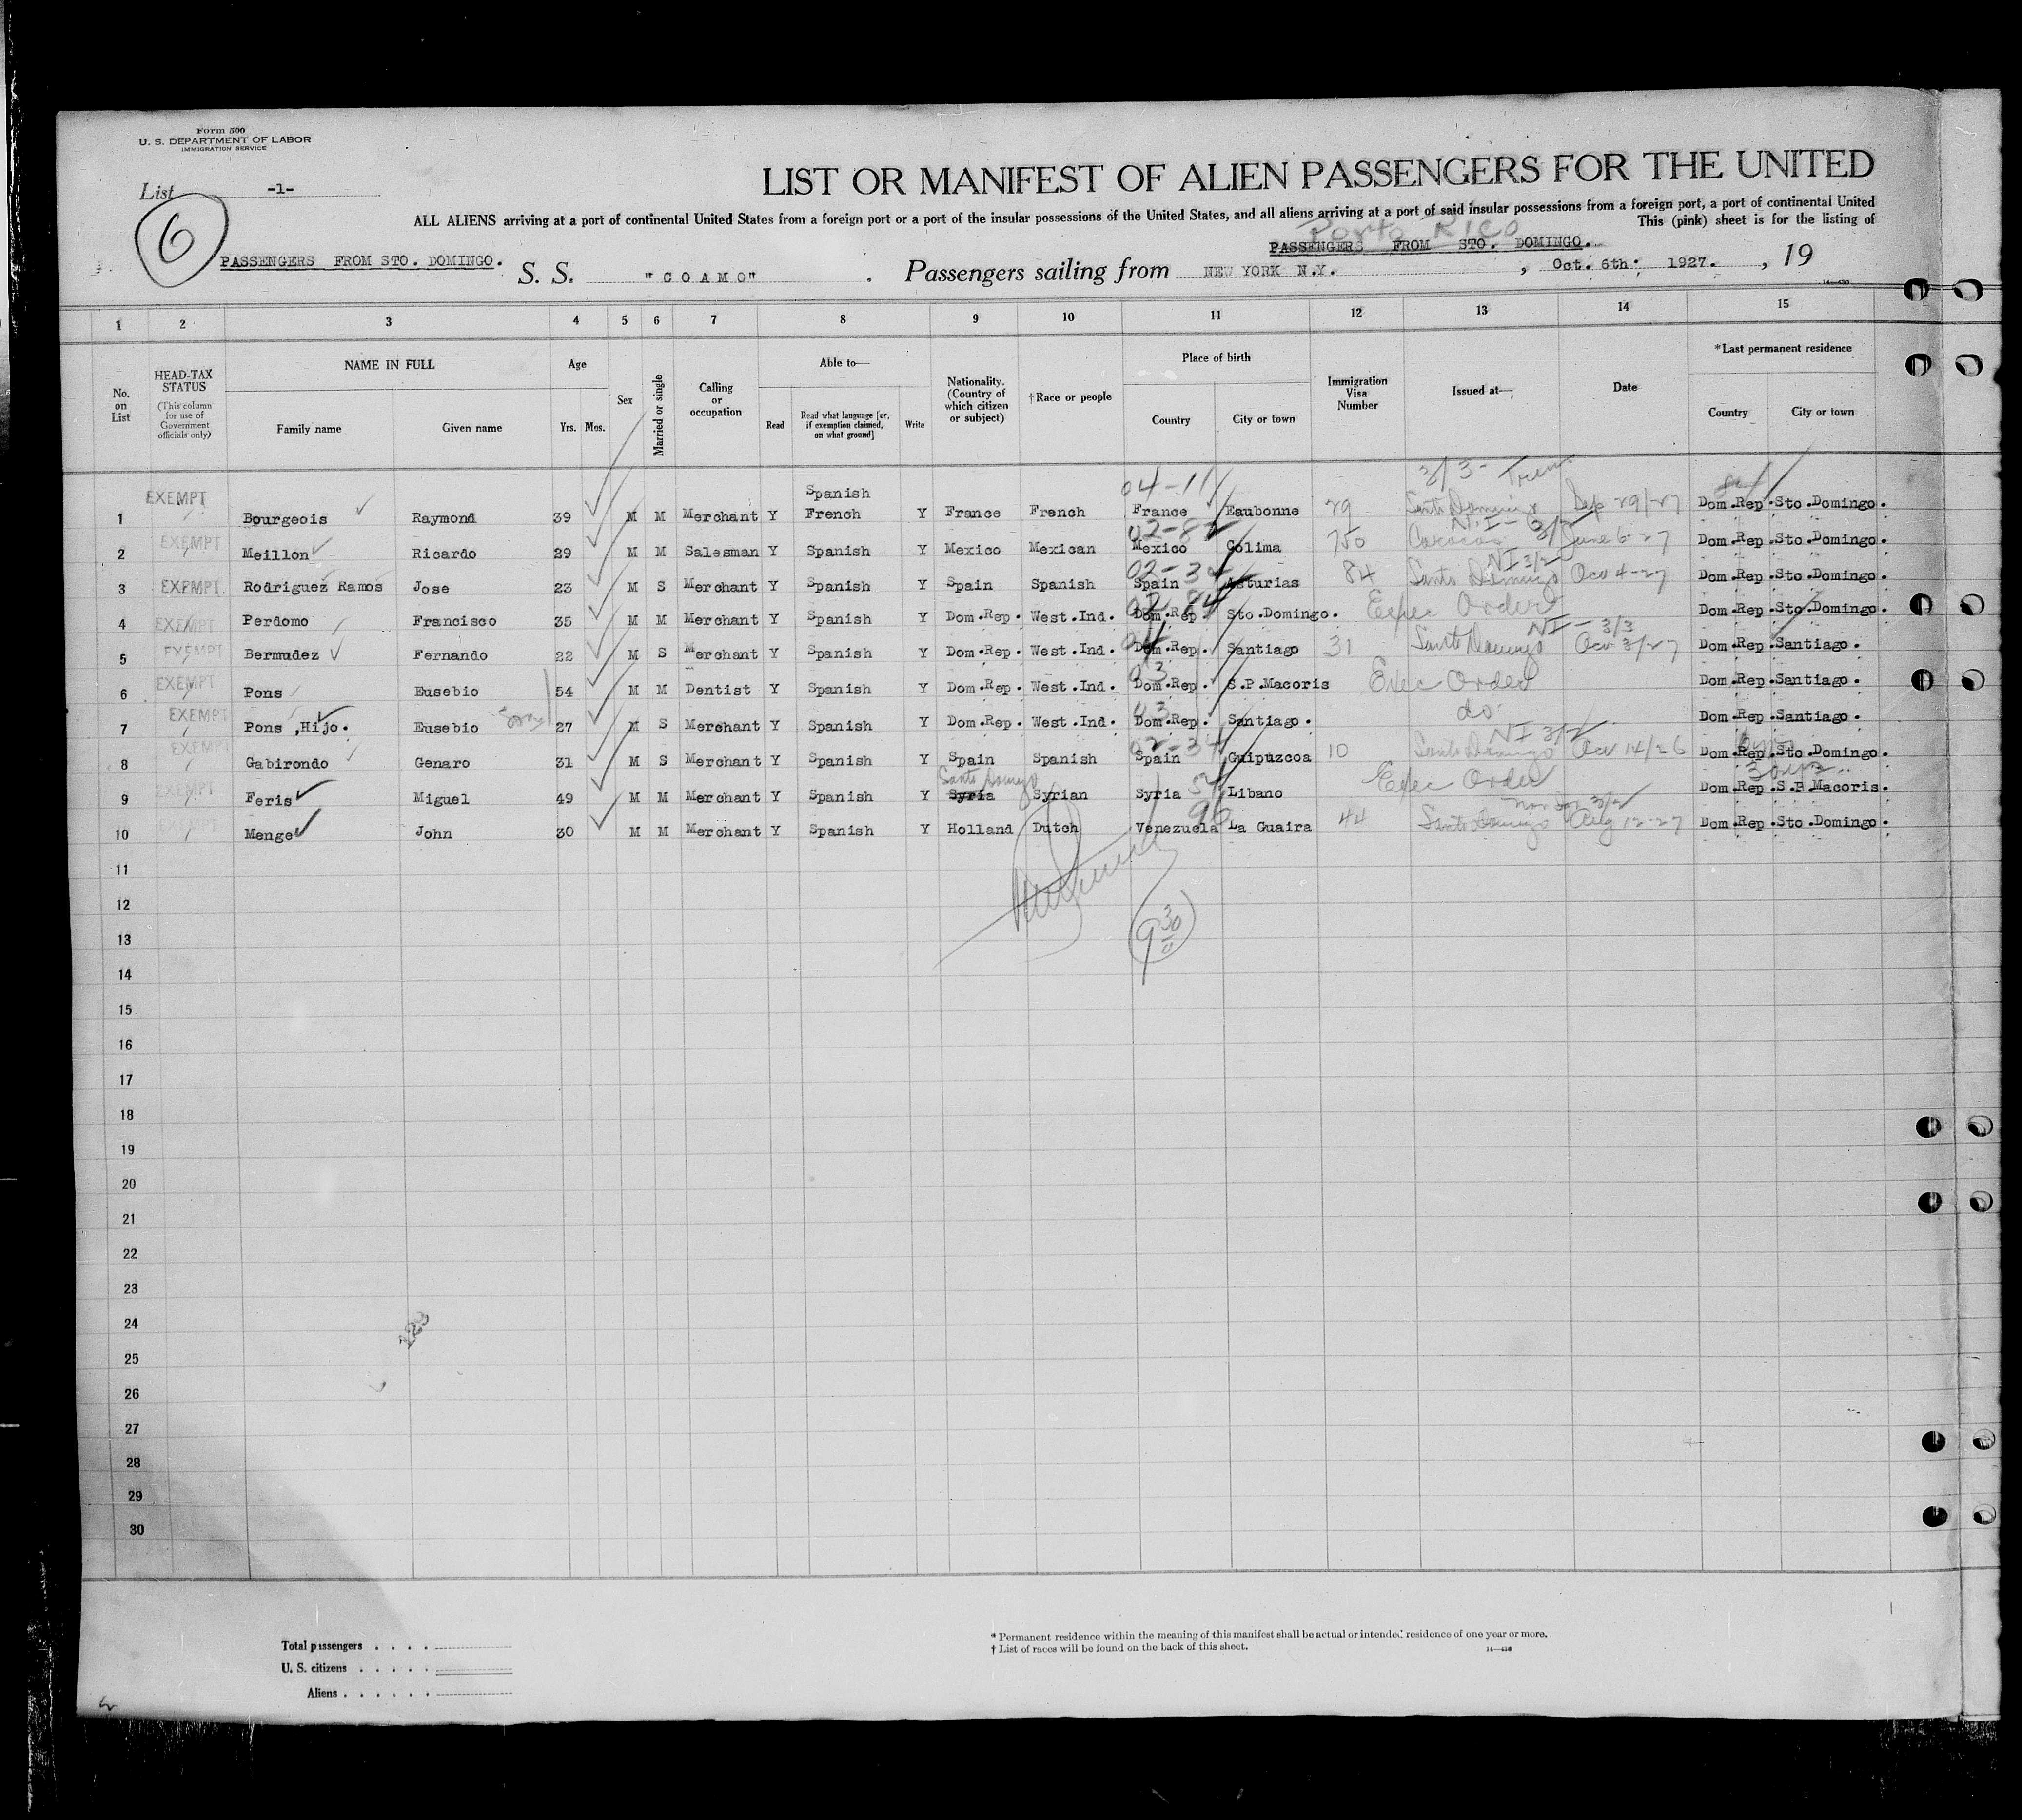 Form 500
U. S. DEPARTMENT OF LABOR
IMMIGRATION SERVICE
LIST OR MANIFEST OF ALIEN PASSENGERS FOR THE UNITED
List -1-
6
ALL ALIENS arriving at a port of continental United States from a foreign port or a port of the insular possessions of the United States, and all aliens arriving at a port of said insular possessions from a foreign port, a port of continental United
This (pink) sheet is for the listing of
Porto Rico
PASSENGERS FROM STO. DOMINGO.
PASSENGERS FROM STO. DOMINGO. S. S. "COAMO" . Passengers sailing from NEW YORK N.Y. , Oct. 6th: 1927. , 19
14—430
1 2 3 4 5 6 7 8 9 10 11 12 13 14 15
No. on List
HEAD-TAX STATUS
(This column for use of Government officials only)
NAME IN FULL
Family name Given name
Age
Yrs. Mos.
Sex
Married or single
Calling or occupation
Able to—
Read
Read what language [or, if exemption claimed, on what ground]
Write
Nationality. (Country of which citizen or subject)
†Race or people
Place of birth
Country City or town
Immigration Visa Number
Issued at—
Date
*Last permanent residence
Country City or town
3/3-
04-11
1 EXEMPT Bourgeois Raymond 39 M M Merchant Y Spanish French Y France French France Eaubonne 79 Santo Domingo Sep 29/27 Dom.Rep.Sto.Domingo.
02-8 N.I- 3/3
2 EXEMPT Meillon Ricardo 29 M M Salesman Y Spanish Y Mexico Mexican Mexico Colima 750 Caracas June 6-27 Dom.Rep.Sto.Domingo.
02-32 NI 3/2
3 EXEMPT. Rodriguez Ramos Jose 23 M S Merchant Y Spanish Y Spain Spanish Spain Asturias 84 Santo Domingo Oct 4-27 Dom.Rep.Sto.Domingo.
4 EXEMPT Perdomo Francisco 35 M M Merchant Y Spanish Y Dom.Rep. West.Ind. Dom.Rep. Sto.Domingo. Exec Order Dom.Rep.Sto.Domingo.
NI - 3/3
5 EXEMPT Bermudez Fernando 22 M S Merchant Y Spanish Y Dom.Rep. West.Ind. Dom.Rep. Santiago 31 Santo Domingo Oct 3/27 Dom.Rep.Santiago.
03
6 EXEMPT Pons Eusebio 54 M M Dentist Y Spanish Y Dom.Rep. West.Ind. Dom.Rep. S.P.Macoris Exec Order Dom.Rep.Santiago.
03
7 EXEMPT Pons ,Hijo. Eusebio 27 M S Merchant Y Spanish Y Dom.Rep. West.Ind. Dom.Rep. Santiago. do. Dom.Rep.Santiago.
02-34 NI 3/2
8 EXEMPT Gabirondo Genaro 31 M S Merchant Y Spanish Y Spain Spanish Spain Guipuzcoa 10 Santo Domingo Oct 14/26 Dom.Rep.Sto.Domingo.
Santo Domingo
9 EXEMPT Feris Miguel 49 M M Merchant Y Spanish Y Syria Syrian Syria Libano Exec Order Dom.Rep.S.P.Macoris.
96 3/2
10 EXEMPT Menge John 30 M M Merchant Y Spanish Y Holland Dutch Venezuela La Guaira 44 Santo Domingo Aug 12-27 Dom.Rep.Sto.Domingo.
11
12
9 30
13
14
15
16
17
18
19
20
21
22
23
24
25
26
27
28
29
30
Total passengers . . . .
U. S. citizens . . . . .
Aliens . . . . . .
* Permanent residence within the meaning of this manifest shall be actual or intended residence of one year or more.
† List of races will be found on the back of this sheet.
14—430